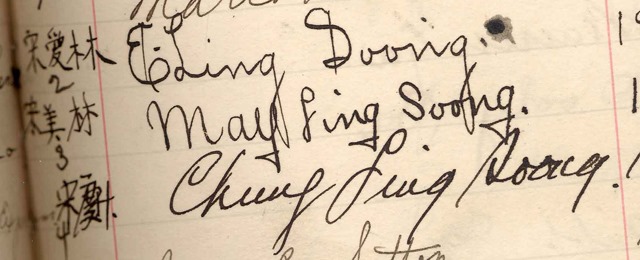 宋愛林 ELing Soong.
2
宋美林 May Ling Soong.
3
宋慶林 Chung Ling Soong.
4